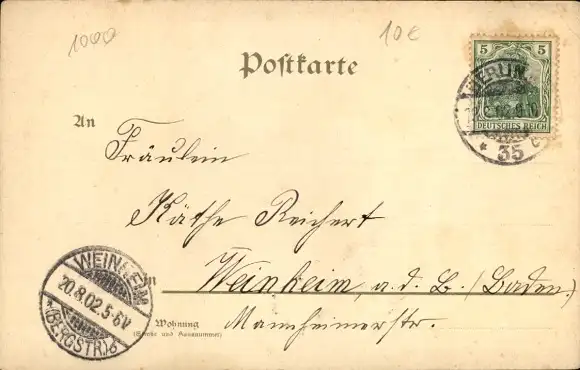 1000
10€
Postkarte
5 5
DEUTSCHES REICH
BERLIN
* 35 c
An
Fräulein
Käthe Reichert
in Weinheim, a. d. B. (Baden)
Wohnung
(Straße und Hausnummer)
Mannheimerstr.
WEINHEIM
20.8.02.5-6V
*(BERGSTR.)